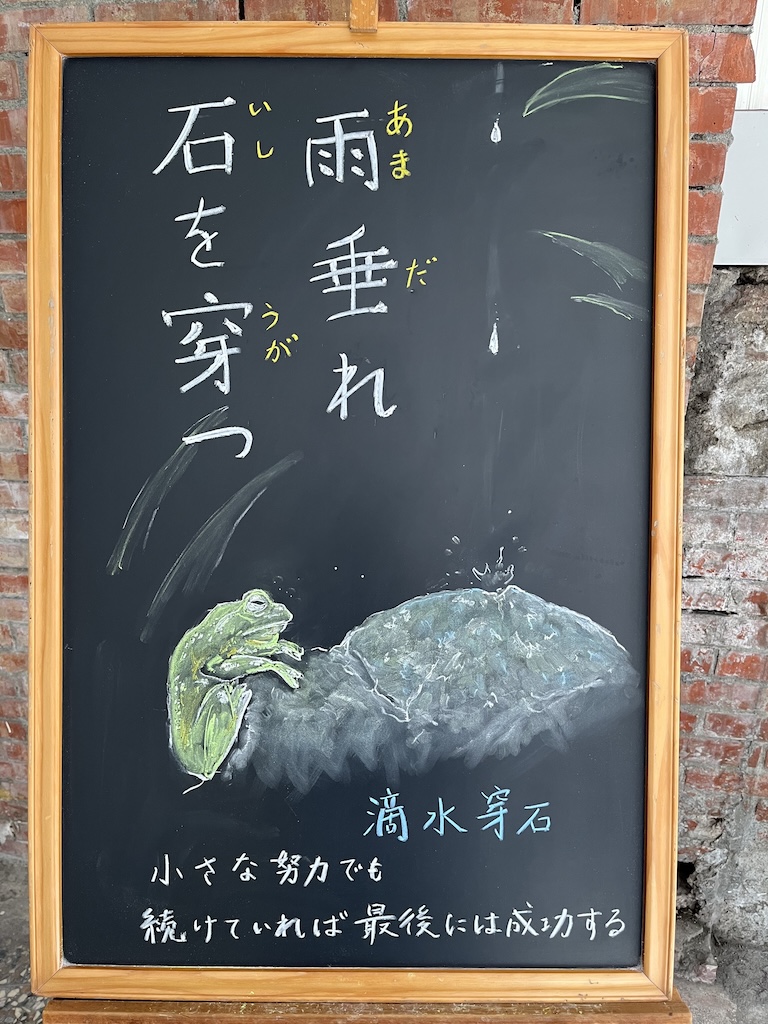 雨垂れ
あま だ
石を穿つ
いし うが
滴水穿石
小さな努力でも
続けていれば最後には成功する